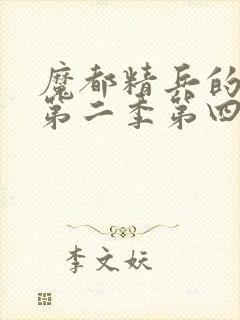 魔都精兵的
第二季第四
李文妖